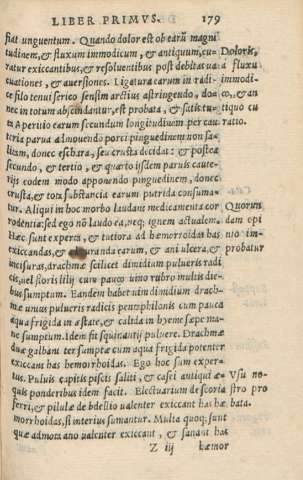 LIBER PRIMVS. 179
fiat unguentum. Quando dolor est ob earū magni
tudinem, & fluxum immodicum, & antiquum, cu- Doloris,
ratur exiccantibus, & resolventibus post debitas ua & fluxu
cuationes, & auersiones. Ligatura earum in radi- immodi-
ce filo tenui serico sensim arctius astringendo, do- co, & an
nec in totum abscindantur, est probata, & satis tu- tiquo cu
ta Aperitio earum secundum longitudinem per cau ratio.
teria parua admouendo porci pinguedinem non sa-
litam, donec eschara, seu crusta decidat: & postea
secundo, & tertio, & quarto ijsdem paruis caute-
rijs eodem modo apponendo pinguedinem, donec
crusta, & tota substantia earum putrida consuma-
tur. Aliqui in hoc morbo laudant medicamenta cor Quorun
rodentia: sed ego nō laudo ea, neq; ignem actualem. dam opi
Hæc sunt experta, & tutiora ad hæmorroidas has nio im-
exiccandas, & curanda earum, & ani ulcera, & probatur
incisuras, drachmæ scilicet dimidium pulueris radi
cis, uel floris lilij cum pauco uino rubro multis die-
bus sumptum. Eandem habet uim dimidium drach-
mæ unius pulueris radicis pentaphilonis cum pauca
aqua frigida in æstate, & calida in hyeme sæpe ma-
ne sumptum. Idem fit squinanti puluere. Drachmæ
duæ galbani ter sumptæ cum aqua frigida potenter
exiccant has hemorrhoidas. Ego hoc sum exper-
tus. Puluis capitis piscis saliti, & casei antiqui æ- Vsu no-
quis ponderibus idem facit. Electuarium de scoria stro pro
ferri, & pilulæ de bdellio ualenter exiccant has hæ bata.
morrhoidas, si interius sumantur. Multa quoq; sunt
quæ admota ano ualenter exiccant, & sanant has
Z iij hæmor